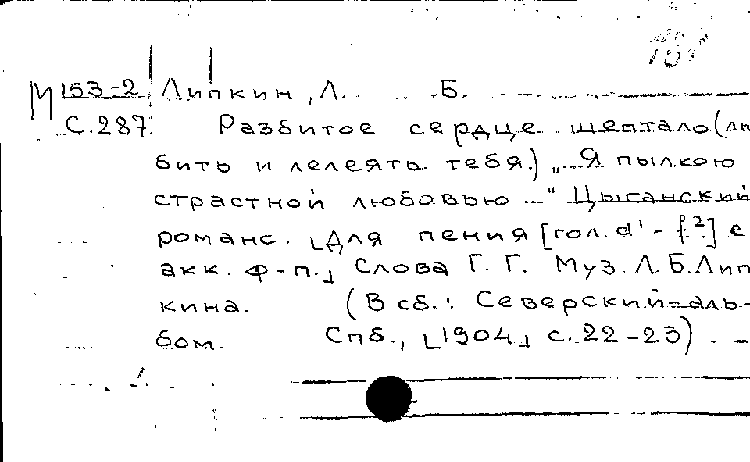 М 153-2 Липкин, Л. Б.
С.287. Разбитое сердце шептало (лю
бить и лелеять тебя.) „Я пылкою
страстной любовью ..." Цыганский
романс. [Для пения [гол. d¹ - f²] с
акк. ф-п.] Слова Г. Г. Муз. Л. Б. Лип
кина. (В сб.: Северский-аль-
бом. Спб., [1904] с. 22-23).